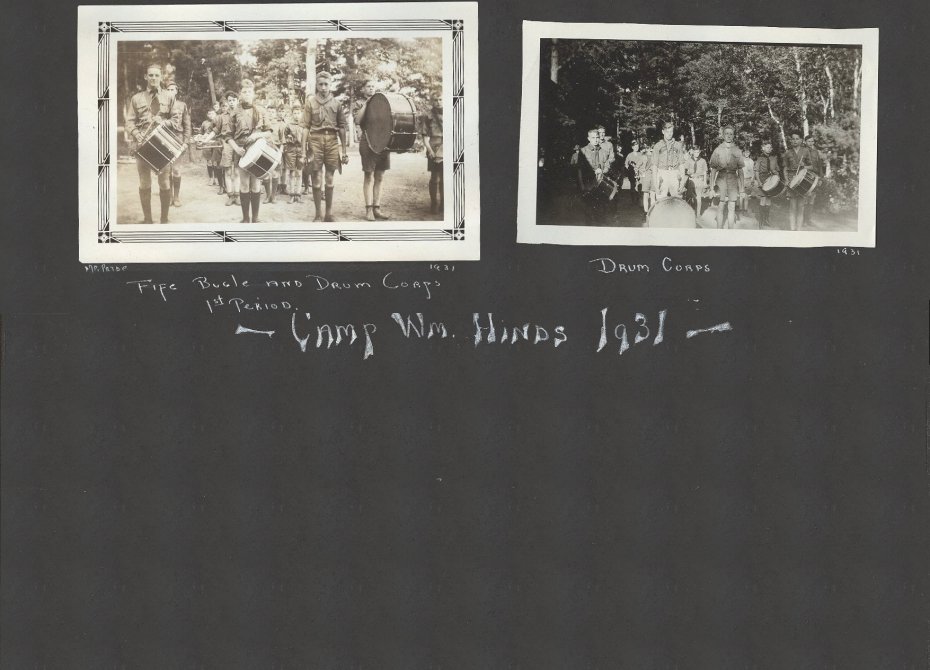 1931
Fife Bugle and Drum Corps
1st Period.
1931
Drum Corps
— Camp Wm. Hinds 1931 —